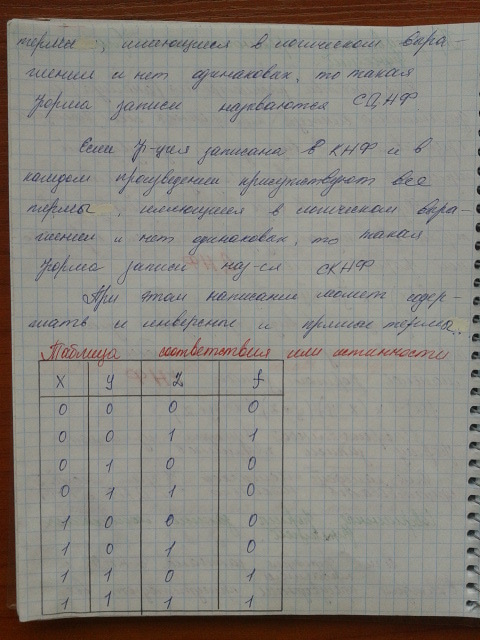 термы, имеющиеся в логическом выра-
жении и нет одинаковых, то такая
форма записи называются СДНФ
Если ф-ция записана в КНФ и в
каждом произведении присутствуют все
термы, имеющиеся в логическом выра-
жении и нет одинаковых, то такая
форма записи наз-ся СКНФ
При этом написание может содер-
жать и инверсные и прямые термы.
Таблица соответствия или истинности
X Y Z f
0 0 0 0
0 0 1 1
0 1 0 0
0 1 1 0
1 0 0 0
1 0 1 0
1 1 0 1
1 1 1 1